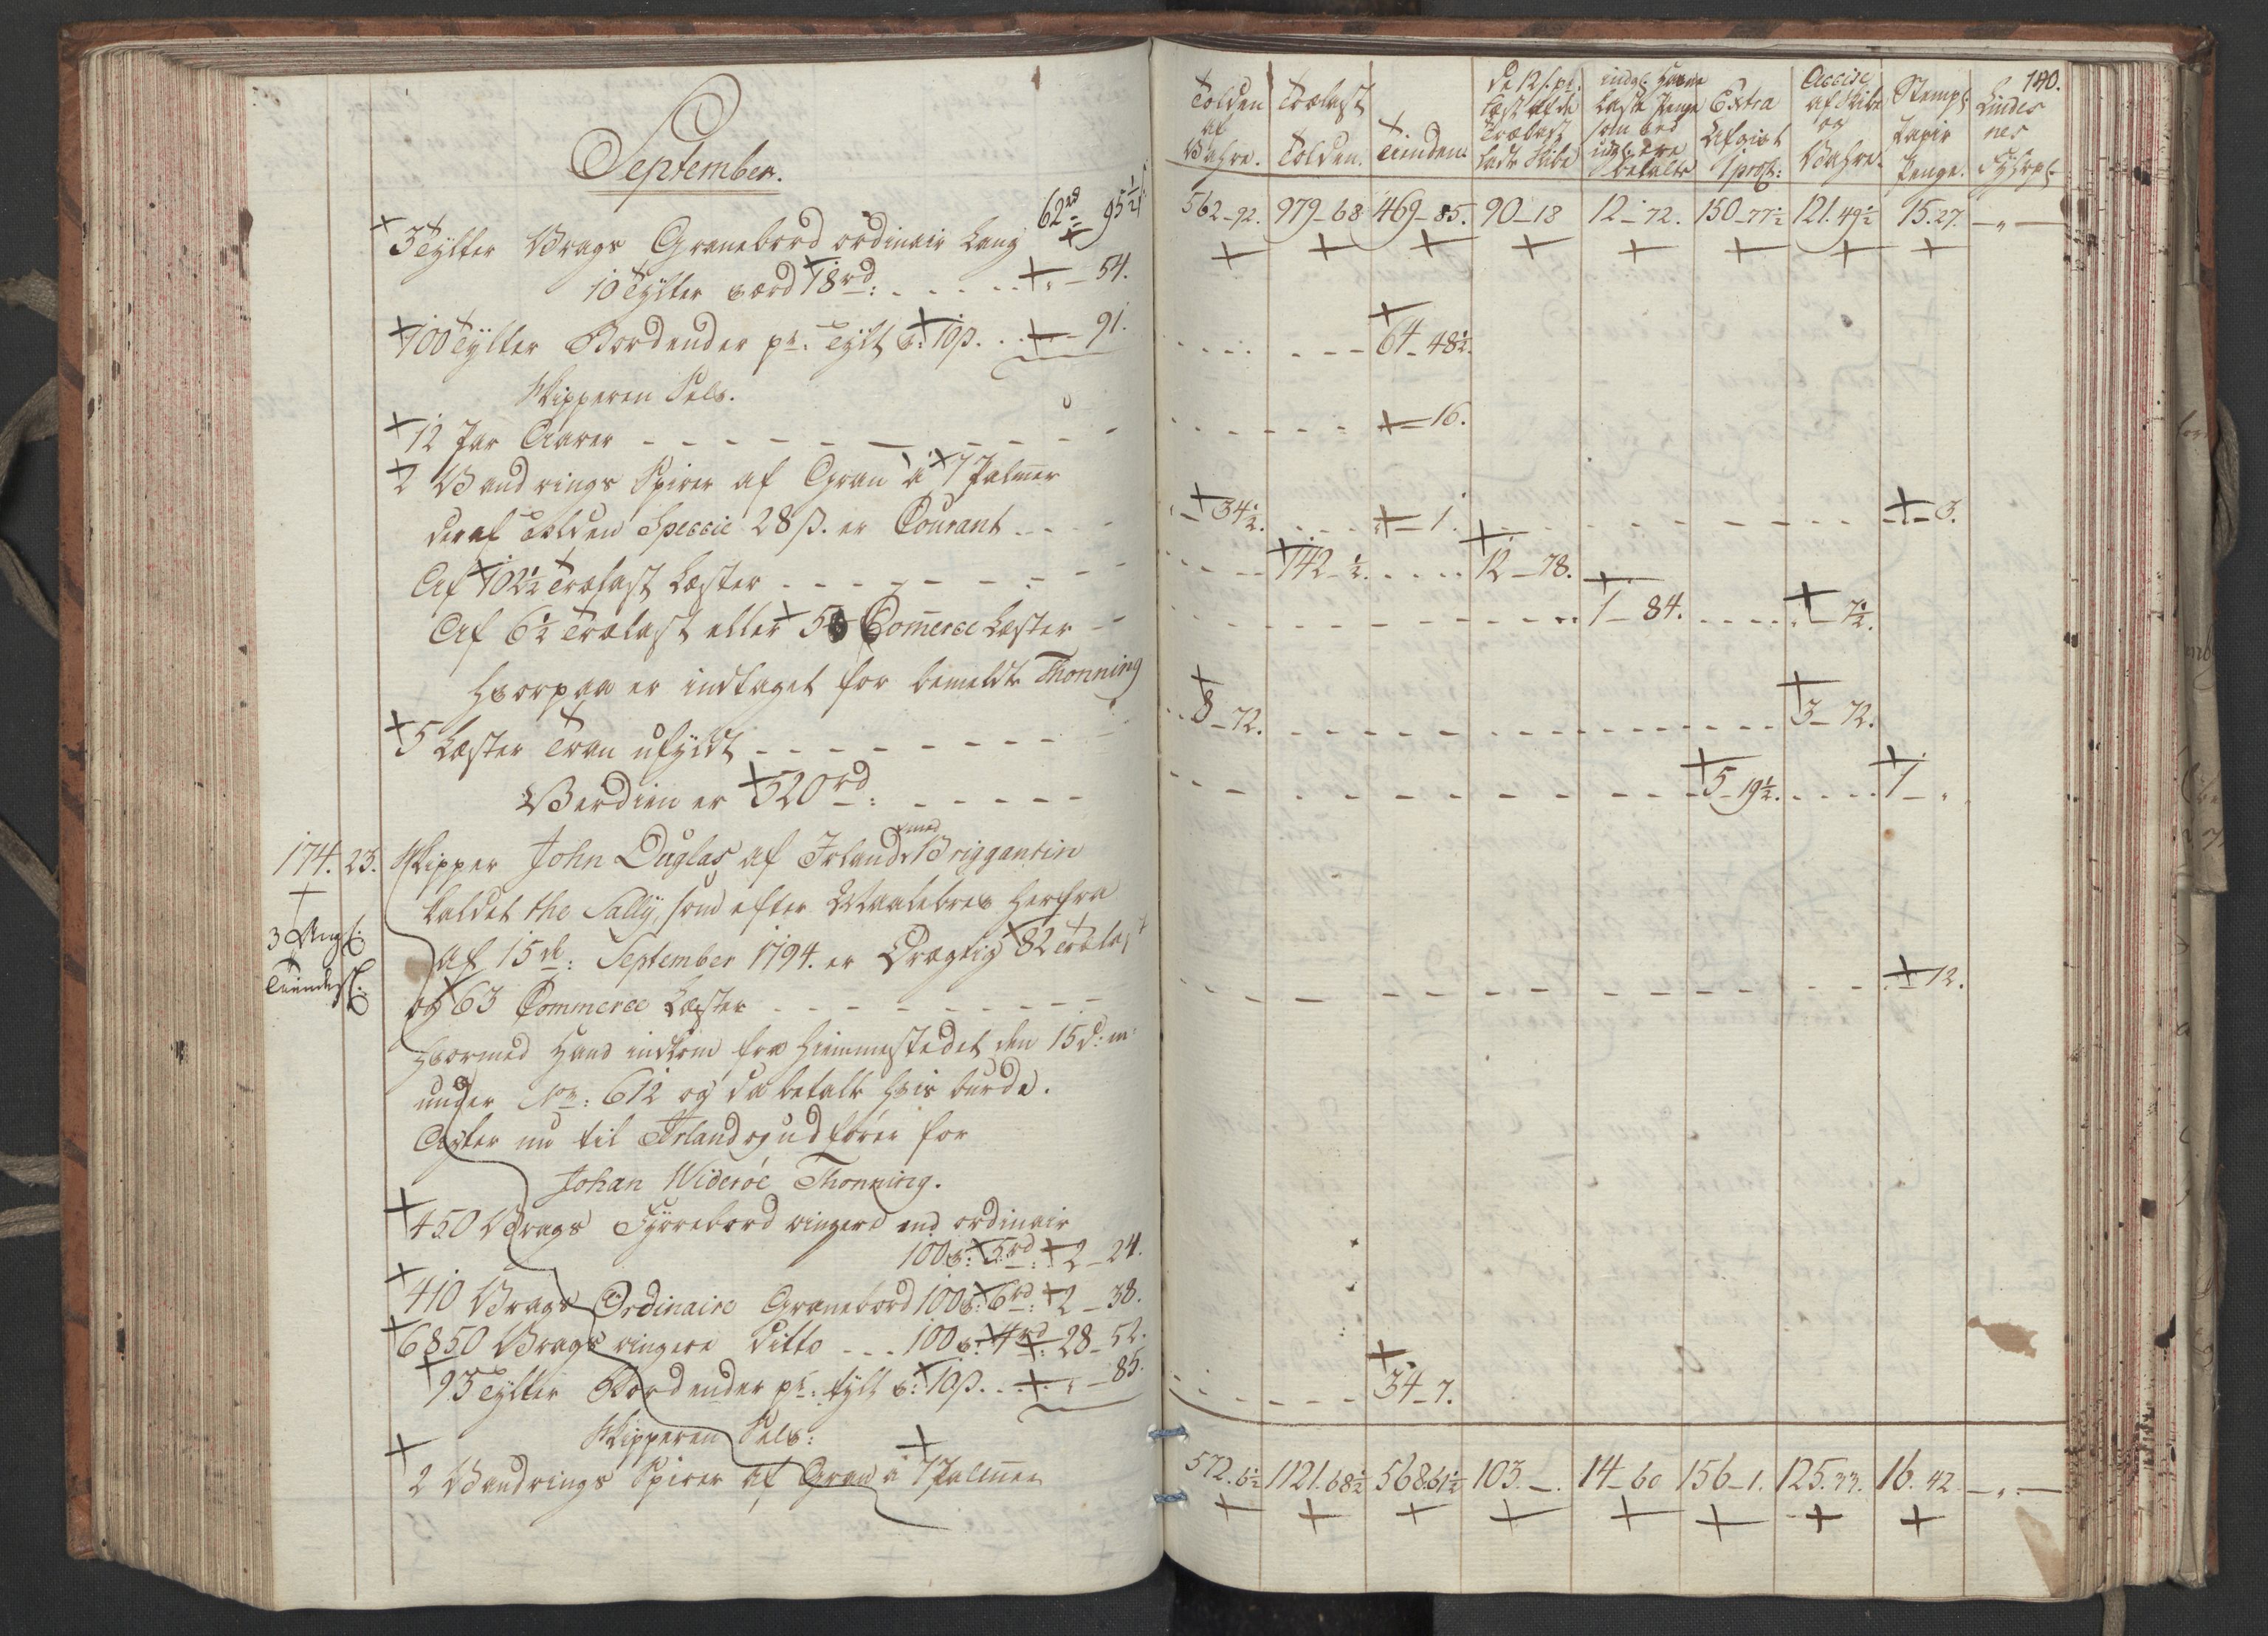 September.
62 rd = 95½
3 Tylter Vrags Granebord ordinair Lang
10 Tylter værd 18 rd: - - - - - „ - 54.
100 Tylter Bordender pr. Tylt v: 10 s. . . - 91.
Skipperen Selv.
12 Par Aarer - - - - - - - - - -
2 Vandrings Spirer af Gran à 7 Palmer
deraf Tolden Speccie 28 s. er Courant - - -
Af 102½ Trælast Læster - - - - - - -
Af 6½ Trælast eller 5 Com̄erce Læster - -
hvorpaa er indtaget for bemeldte Thonning
5 Læster Tran - - - - - - - -
Verdien er 520 rd: - - - - -
174. 23. Skipper John Duglas af Irland med Briggantin
kaldet the Sally, som efter Maalebrev herfra
3 Ang.
af 15 de: September 1794. er Drægtig 82 Trælast
Tiende
og 63 Commerce Læster - - - - - - - -
hvormed Hand indkom fra Hiemmestedet den 15 d: m:
under No: 612 og da betalte hvis burde.
Agter nu til Irland og udfører for
Johan Wideröe Thonning.
450 Vrags Fyrrebord ringere end ordinair
100 v: 5 rd: 2 - 24.
410 Vrags Ordinaire Granebord 100 v: 6 rd: 2 - 38.
6850 Vrags ringere Ditto - - - 100 v: 4 rd: 28 - 52.
95 Tylter Bordender pr: tylt v: 10 s. . . „ - 85.
Skipperen Selv:
2 Vandrings Spirer af Gran à 7 Palmer
140.
Tolden af Vahre.
Trælast Tolden.
Tienden
de 12 s. pr. Læst af de Trælast ladte Skibe
indgl. Havne Laste Penge som ved udgl. ere betalte
Extra Afgivt 1 proCt:
Accise af Skibe og Vahre.
Stempl. Papir Penge.
Lindes nes Fyhrpl.
562-92. 979-68 469-85. 90-18 12-72. 150-77½ 121.49½ 15.27. - „ -
64-48½.
- 16.
- 34½. - 1. - 3.
142-½. 12-78.
1-84. - 7½.
8-72. 3-72.
5-19½. 1 - „
- 12.
34-7.
572.6½ 1121.68½ 568.61½ 103.-. 14-60 156-1. 125.33. 16.42 - „ -